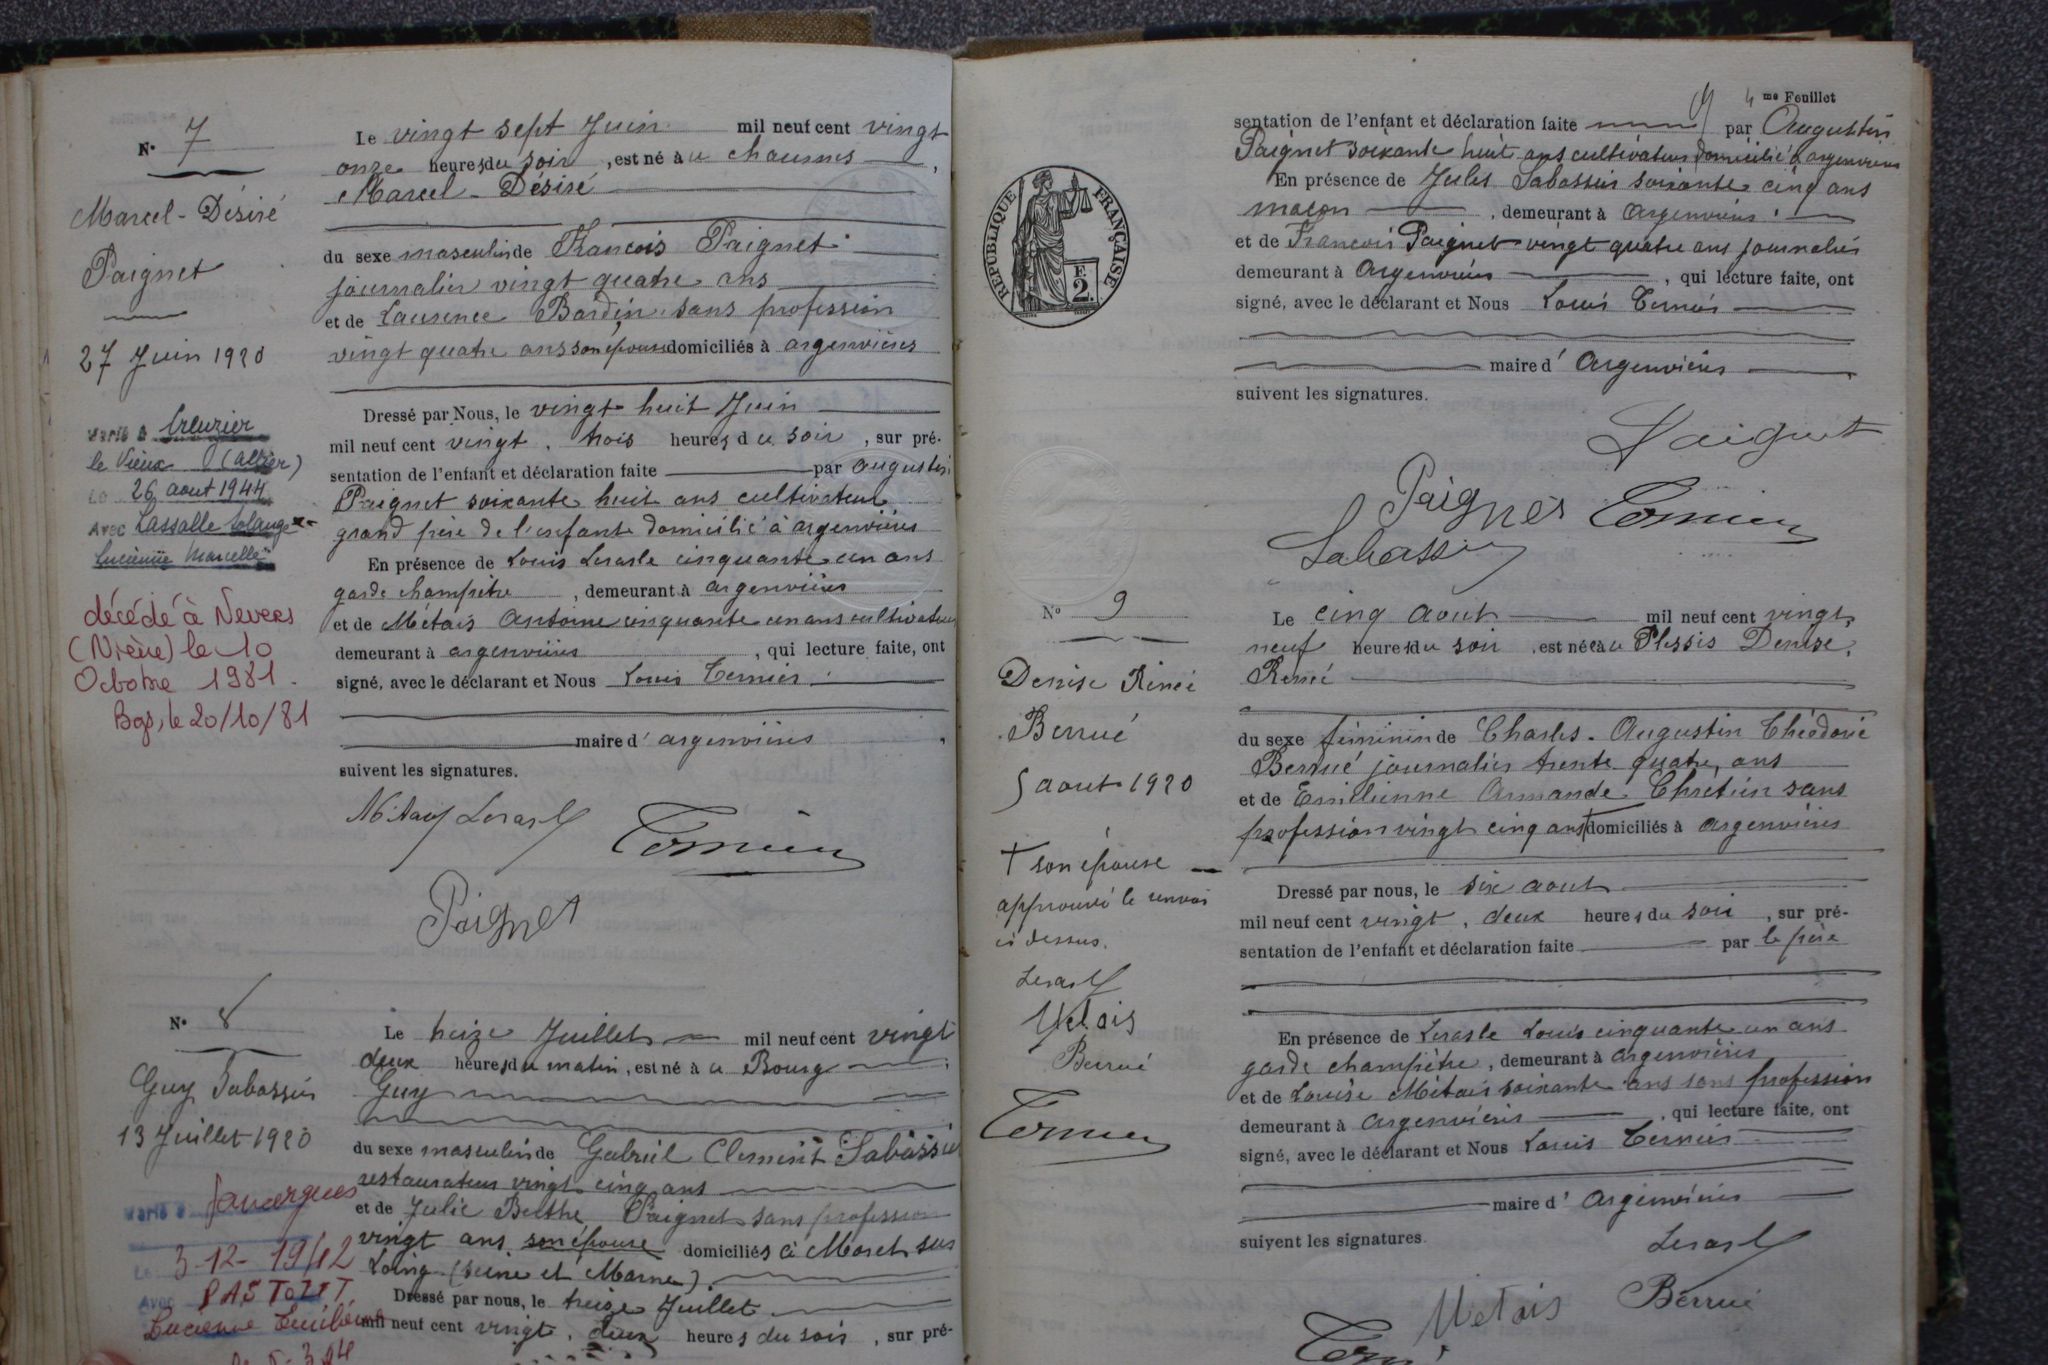 N° 7
Marcel-Désiré
Paignet
27 Juin 1920
Marié à Creuzier
le Vieux (Allier)
Le 26 aout 1944
Avec Lassalle Solange
Lucienne Marcelle
décédé à Nevers
(Nièvre) le 10
Octobre 1981.
Bgs, le 20/10/81
Le vingt sept Juin mil neuf cent vingt
onze heures du soir, est né à u chaumes,
Marcel-Désiré
du sexe masculin de François Paignet
journalier vingt quatre ans
et de Laurence Bardin sans profession
vingt quatre ans son épouse domiciliés à argenvières
Dressé par Nous, le vingt huit Juin
mil neuf cent vingt, trois heures du soir, sur pré-
sentation de l'enfant et déclaration faite par augustin
Paignet soixante huit ans cultivateur
grand père de l'enfant domicilié à argenvières
En présence de Louis Lerasle cinquante un ans
garde champêtre, demeurant à argenvières
et de Métais Antoine cinquante un ans cultivateur
demeurant à argenvières, qui lecture faite, ont
signé, avec le déclarant et Nous Louis Ternier
maire d'argenvières
suivent les signatures.
Métais Lerasle
Ternier
Paignet
N° 8
Guy Sabassier
13 Juillet 1920
Marié à
Le 3-12-1942
Avec PASTOZET
Lucienne
Le treize Juillet mil neuf cent vingt
deux heures du matin, est né à u Bourg,
Guy
du sexe masculin de Gabriel Clement Sabassier
restaurateur vingt cinq ans
et de Julie Berthe Paignet sans profession
vingt ans son épouse domiciliés à Moret sur
Loing (Seine et Marne).
Dressé par nous, le treize Juillet
mil neuf cent vingt, deux heures du soir, sur pré-
4 me Feuillet
sentation de l'enfant et déclaration faite par Augustin
Paignet soixante huit ans cultivateur domicilié à argenvières
En présence de Jules Sabassier soixante cinq ans
maçon, demeurant à Argenvières
et de François Paignet vingt quatre ans journalier
demeurant à Argenvières, qui lecture faite, ont
signé, avec le déclarant et Nous Louis Ternier
maire d'Argenvières
suivent les signatures.
Paignet
Paignet Ternier
Sabassier
RÉPUBLIQUE FRANÇAISE
2 F
N° 9
Denise Renée
Berrué
5 aout 1920
+ son épouse
approuvé le renvoi
ci dessus.
Lerasle
Métais
Berrué
Ternier
Le cinq Août mil neuf cent vingt,
neuf heures du soir, est née à u Plessis Denise,
Renée
du sexe féminin de Charles-Augustin Théodore
Berrué journalier trente quatre ans
et de Emilienne Armande Chretien sans
profession vingt cinq ans + domiciliés à Argenvières
Dressé par nous, le six aout
mil neuf cent vingt, deux heures du soir, sur pré-
sentation de l'enfant et déclaration faite par le père
En présence de Lerasle Louis cinquante un ans
garde champêtre, demeurant à argenvières
et de Louise Métais soixante ans sans profession
demeurant à Argenvières, qui lecture faite, ont
signé, avec le déclarant et Nous Louis Ternier
maire d'Argenvières
suivent les signatures.
Lerasle
Métais Berrué